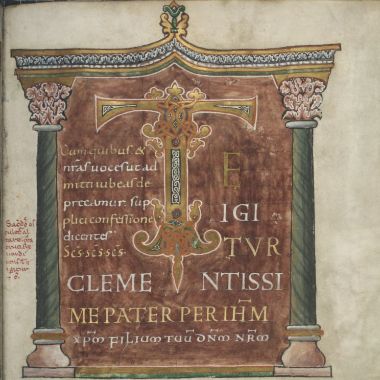 Cum quibus et
nr̄as voces ut ad
mitti iubeas de
precamur. sup
plici confessione
dicentes
Sc̄s sc̄s sc̄s
TE
IGI
TVR
CLEMENTISSI
ME PATER PER IHM̄
XPM̄ FILIUM TUŪ DN̄M NR̄M